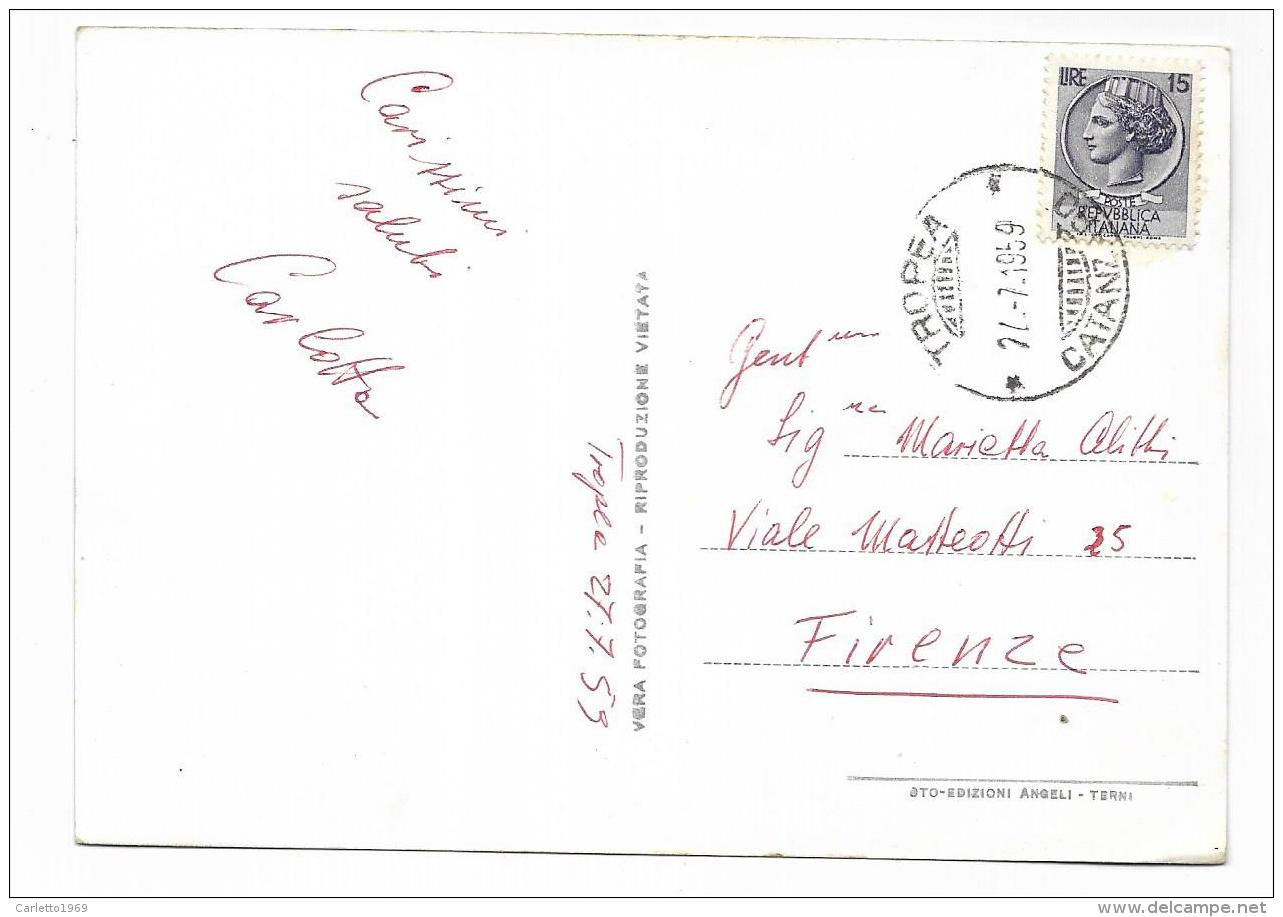 Carissimi
saluti
Carlotta
Tropea 27.7.59
VERA FOTOGRAFIA - RIPRODUZIONE VIETATA
LIRE 15
POSTE
REPVBBLICA
ITALIANA
TROPEA
-7.1959
CATANZ
Gent ma
Sig na Marietta
Viale Matteotti 25
Firenze
OTO-EDIZIONI ANGELI - TERNI
Carletto1969
delcampe.net